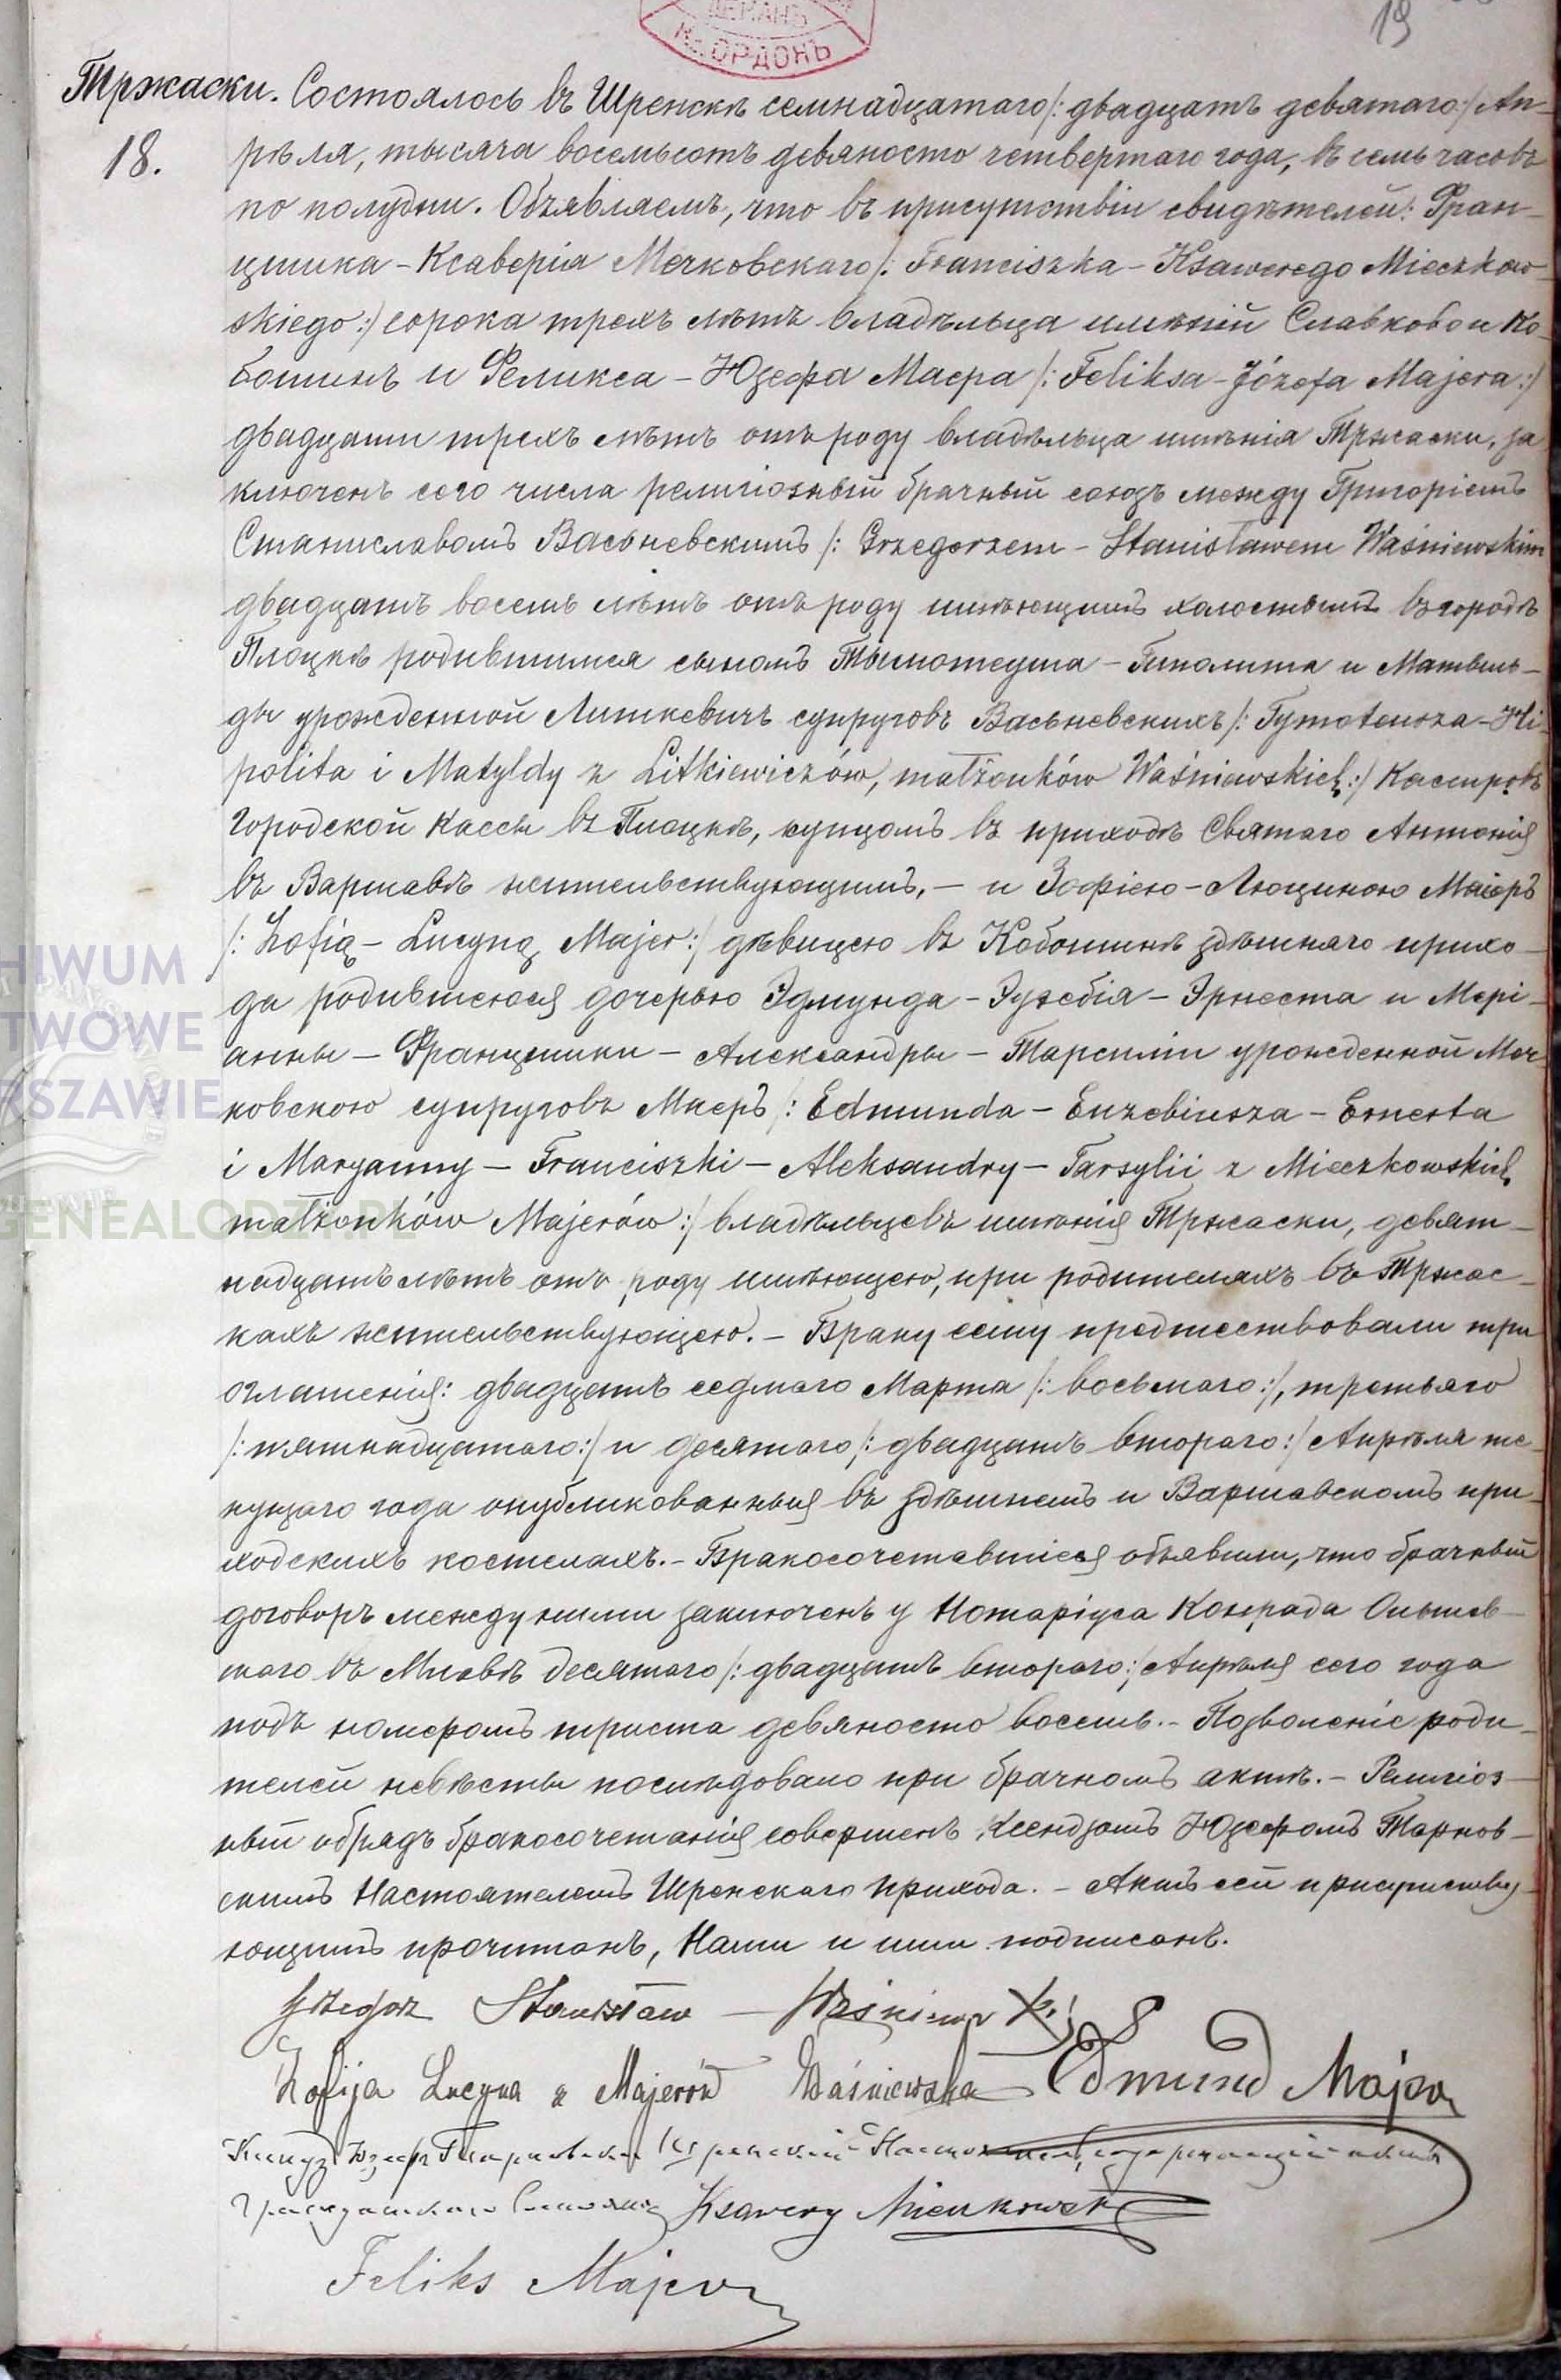 ДЕКАНЪ
К. ОРДОНЪ
19
Тржаски.
18.
Состоялось въ Шренскѣ семнадцатаго /: двадцать девятаго :/ Ап-
рѣля, тысяча восемьсотъ девяносто четвертаго года, въ семь часовъ
по полудни. Объявляемъ, что въ присутствіи свидѣтелей: Фран-
цишка - Ксаверія Мечковскаго /: Franciszka - Ksawerego Mieczkow-
skiego :/ сорока трехъ лѣтъ владѣльца имѣній Славково и Ко-
бошинъ и Феликса - Юзефа Маера /: Feliksa - Józefa Majera :/
двадцати трехъ лѣтъ отъ роду владѣльца имѣнія Тржаски, за
ключенъ сего числа религіозный брачный союзъ между Григоріемъ
Станиславомъ Васьневскимъ /: Grzegorzem - Stanisławem Waśniewskim
двадцать восемь лѣтъ отъ роду имѣющимъ холостымъ въ городѣ
Плоцкѣ родившимся сыномъ Тымотеуша - Гиполита и Матыль-
ды урожденной Литкевичъ супруговъ Васьневскихъ /: Tymoteusza - Hi-
polita i Matyldy z Litkiewiczów, małżonków Waśniewskich :/ Кассировъ
Городской Кассы въ Плоцкѣ, купцомъ въ приходѣ Святаго Антонія
въ Варшавѣ жительствующимъ, - и Зофіею - Люциною Маіеръ
/: Zofią - Lucyną Majer :/ дѣвицею въ Кобошинѣ здѣшняго прихо-
да родившеюся дочерью Эдмунда - Эузебія - Эрнеста и Марі-
анны - Францишки - Александры - Тарсиліи урожденной Меч-
ковскою супруговъ Маеръ /: Edmunda - Euzebiusza - Ernesta
i Maryanny - Franciszki - Aleksandry - Tarsylii z Mieczkowskich
małżonków Majerów :/ владѣльцевъ имѣнія Тржаски, девят-
надцать лѣтъ отъ роду имѣющею, при родителяхъ въ Тржас-
кахъ жительствующею. - Браку сему предшествовали три
оглашенія: двадцать седмаго Марта /: восьмаго :/, третьяго
/: пятнадцатаго :/ и десятаго /: двадцать втораго :/ Апрѣля те-
кущаго года опубликованныя въ здѣшнемъ и Варшавскомъ при-
ходскихъ костелахъ. - Бракосочетавшіеся объявили, что брачный
договоръ между ними заключенъ у Нотаріуса Конрада Ольшев-
скаго въ Млавѣ десятаго /: двадцать втораго :/ Апрѣля сего года
подъ номеромъ триста девяносто восемь. - Позволеніе роди-
телей невѣсты послѣдовало при брачномъ актѣ. - Религіоз-
ный обрядъ бракосочетанія совершенъ Ксендзомъ Юзефомъ Тарнов-
скимъ Настоятелемъ Шренскаго прихода. - Актъ сей присутству-
ющимъ прочитанъ, Нами и ими подписанъ.
Grzegorz Stanisław - Waśniewski
Zofija Lucyna z Majerów Waśniewska Edmund Majer
Ксендз Юзеф Тарновски Шренскій Настоятель, содержащій акты
Гражданскаго Состоянія Ksawery Mieczkowski
Feliks Majer
HIWUM
TWOWE
RSZAWIE
GENEALODZY.PL